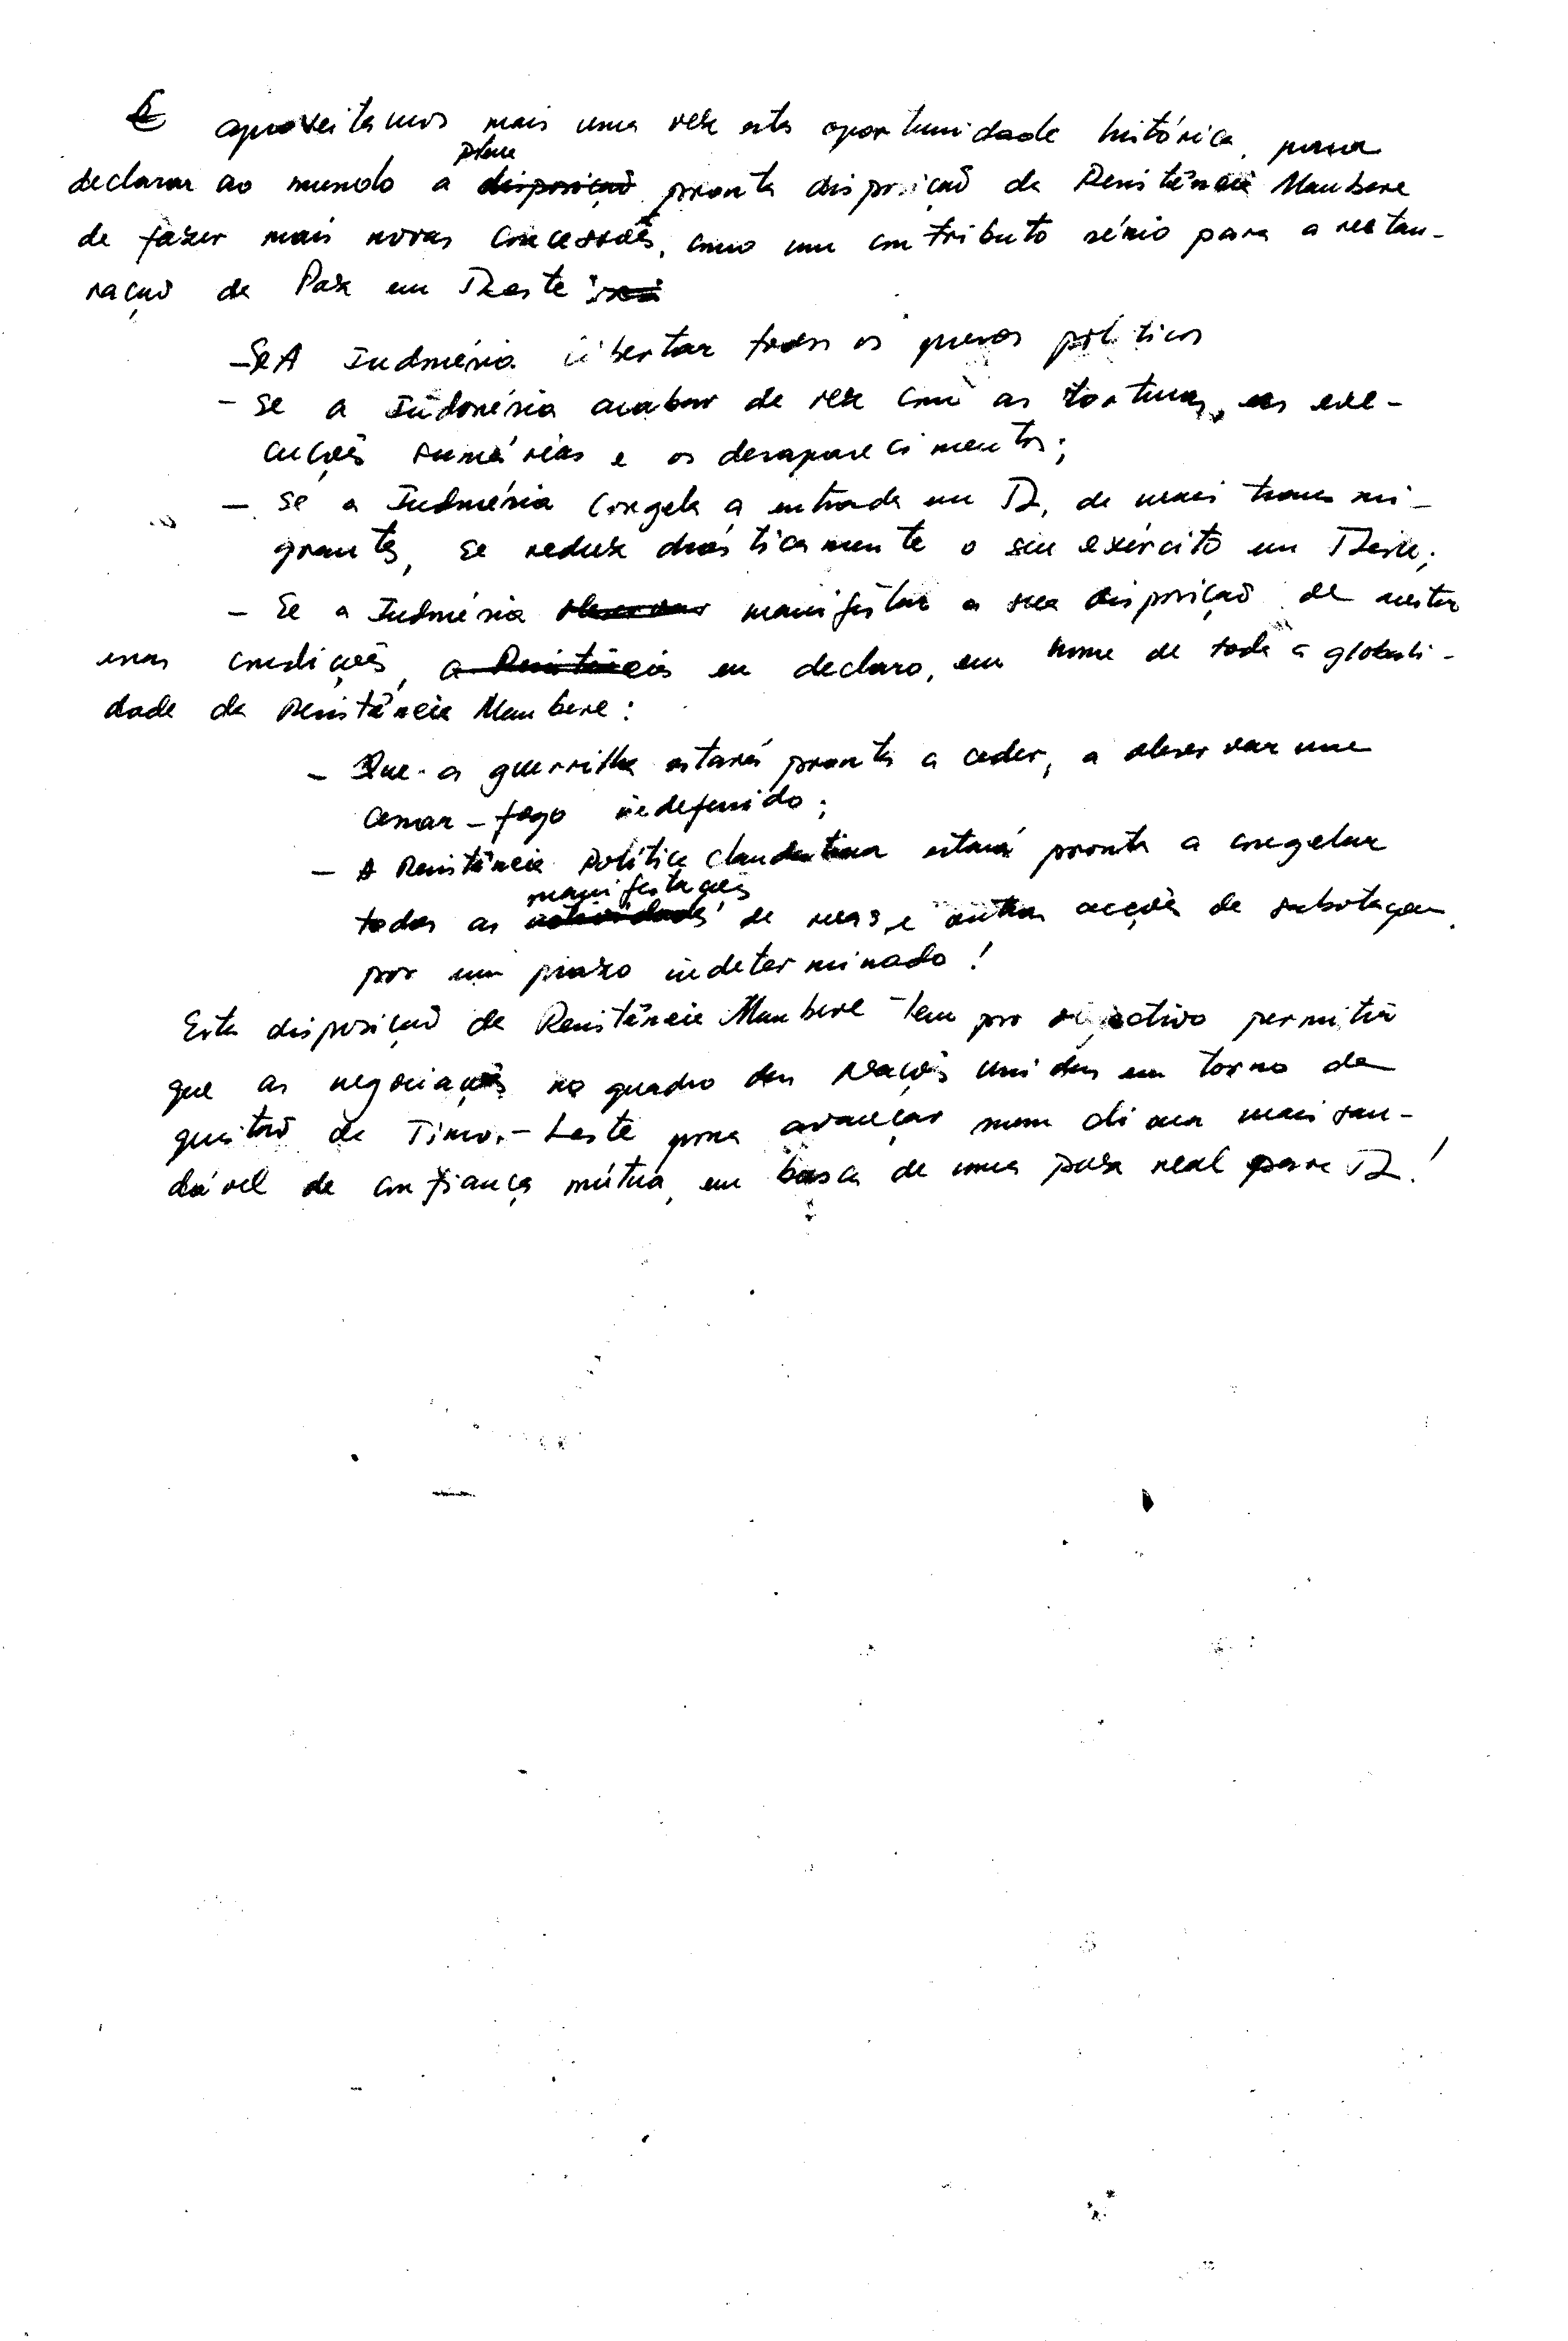 E aproveitamos mais uma vez esta oportunidade histórica, para
plena
declarar ao mundo a disposição pronta disposição da Resistência Maubere
de fazer mais novas concessões, como um contributo sério para a restau-
ração da Paz em T. Leste
- Se A Indonésia libertar todos os presos políticos
- Se a Indonésia acabar de vez com as torturas, as exe-
cuções sumárias e os desaparecimentos;
- Se a Indonésia congela a entrada em TL, de mais transmi-
grantes, se reduz drásticamente o seu exército em T. Leste;
- Se a Indonésia observar manifestar a sua disposição de aceitar
essas condições, a Resistência eu declaro, em nome de toda a globali-
dade da Resistência Maubere:
- Que a guerrilha estará pronta a ceder, a observar um
cessar-fogo indefinido;
- A Resistência Política clandestina estará pronta a congelar
manifestações
todas as actividades de ruas e outras acções de sabotagem,
por um prazo indeterminado!
Esta disposição da Resistência Maubere tem por objectivo permitir
que as negociações no quadro das Nações Unidas em torno da
questão de Timor-Leste possa avançar num clima mais sau-
dável de confiança mútua, em busca de uma paz real para TL!